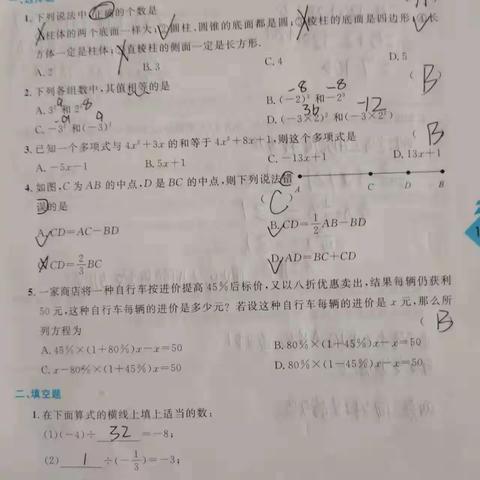 1. 下列说法中,正确的个数是
柱体的两个底面一样大;②圆柱、圆锥的底面都是圆;棱柱的底面是四边形;④长
方体一定是柱体;直棱柱的侧面一定是长方形.
A. 2 B. 3 C. 4 D. 5
( B
2. 下列各组数中,其值相等的是
9 8 -8 -8
A. 3² 和 2³ B. (-2)³ 和 -2³
-9 9 36 -12
C. -3² 和 (-3)² D. (-3×2)² 和 (-3×2²)
3. 已知一个多项式与 4x²+3x 的和等于 4x²+8x+1,则这个多项式是 ( B
A. -5x-1 B. 5x+1 C. -13x+1 D. 13x+1
4. 如图,C 为 AB 的中点,D 是 BC 的中点,则下列说法错
A C D B
误的是 (C)
A. CD=AC-BD B. CD=1/2AB-BD
CD=2/3BC D. AD=BC+CD
5. 一家商店将一种自行车按进价提高 45%后标价,又以八折优惠卖出,结果每辆仍获利
50 元,这种自行车每辆的进价是多少元? 若设这种自行车每辆的进价是 x 元,那么所
列方程为 ( B
A. 45%×(1+80%)x-x=50 B. 80%×(1+45%)x-x=50
C. x-80%×(1+45%)x=50 D. 80%×(1-45%)x-x=50
二、填空题
1. 在下面算式的横线上填上适当的数:
(1)(-4)÷ 32 =-8;
(2) 1 ÷(-1/3)=-3;